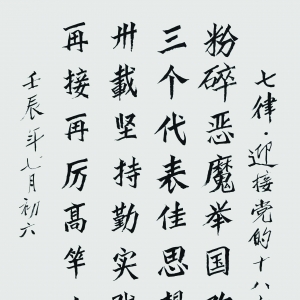 七律·迎接党的十八
粉碎恶魔举国
三个代表佳思想
卅載坚持勤实
再接再厉高竿
壬辰年七月初六